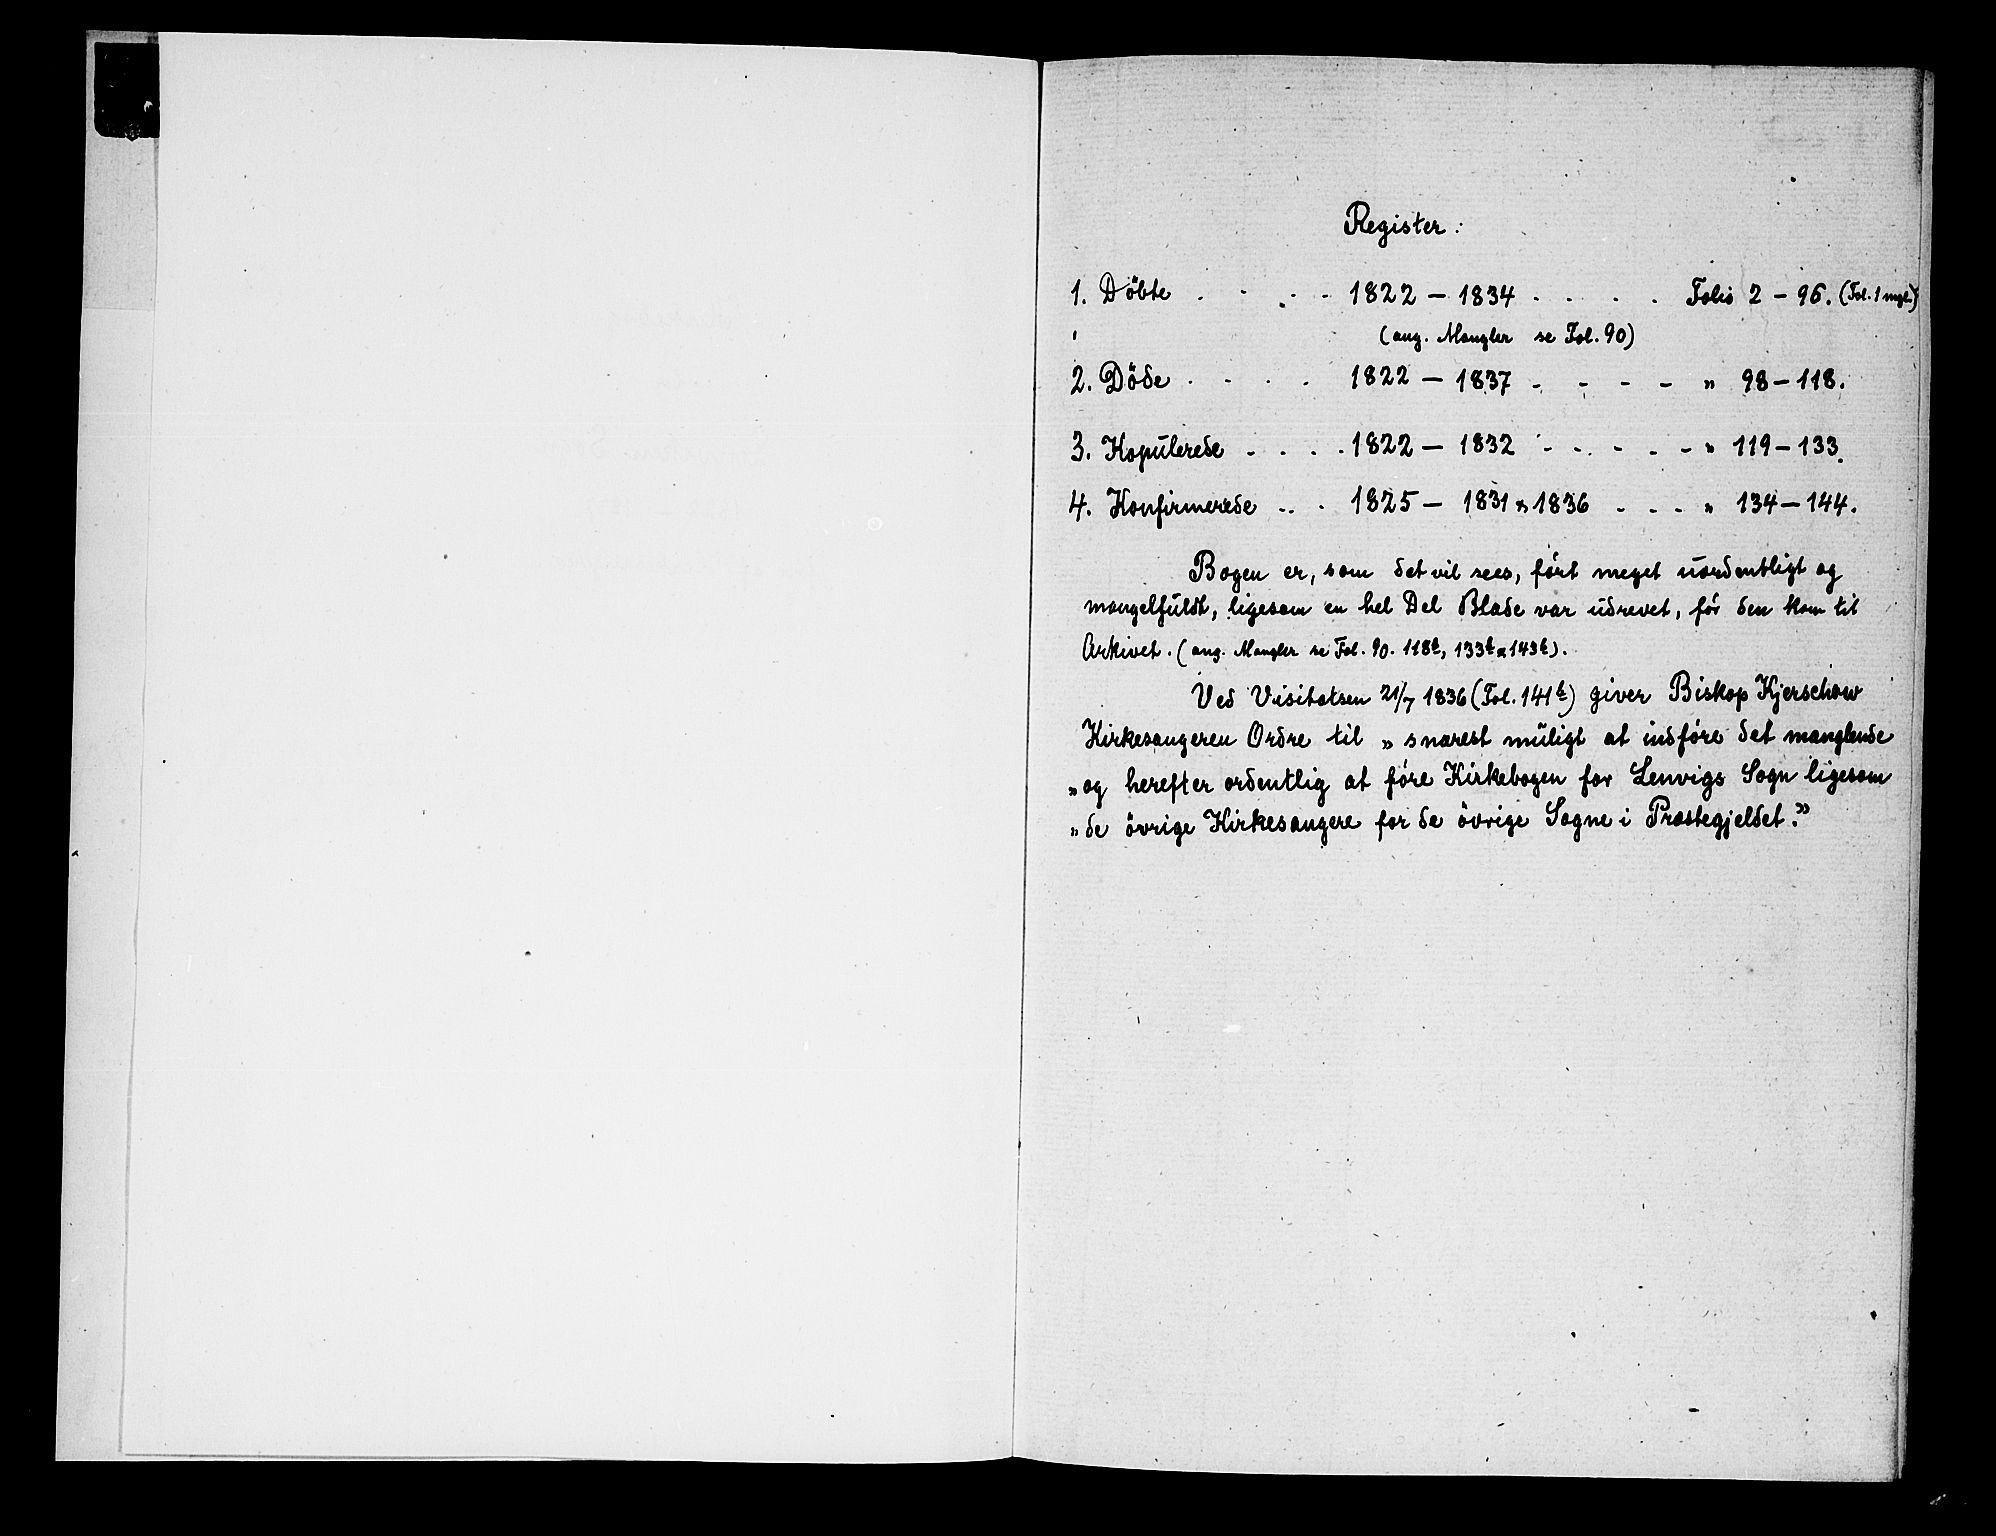 Register:
1. Döbte . . . . . 1822 – 1834 . . . . Folio 2 – 96. (Fol. 1 mgl.)
(ang. Mangler se Fol. 90)
2. Döde . . . . 1822 – 1837 . . . . „ 98 – 118.
3. Kopulerede . . . . 1822 – 1832 . . . . . „ 119 – 133.
4. Konfirmerede . . . 1825 – 1831 & 1836 . . . „ 134 – 144.
Bogen er, som det vil sees, fört meget uordentligt og
mangelfuldt, ligesom en hel Del Blade var udrevet, för den kom til
Arkivet. (ang. Mangler se Fol. 90. 118b, 133b & 143b).
Ved Visitatsen 21/7 1836 (Fol. 141b) giver Biskop Kjerschow
Kirkesangeren Ordre til „snarest muligt at indföre det manglende
„og herefter ordentlig at före Kirkebogen for Lenvigs Sogn ligesom
„de övrige Kirkesangere for de övrige Sogne i Præstegjeldet."